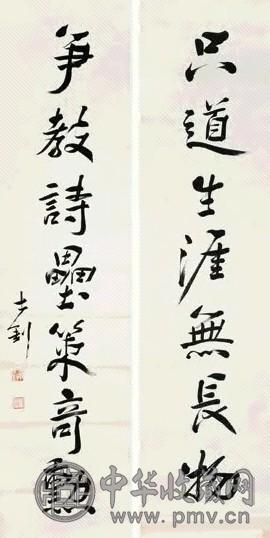 只道生涯無長物
爭教詩壘策奇勳
士釗
中华收藏网
www.pmv.cn